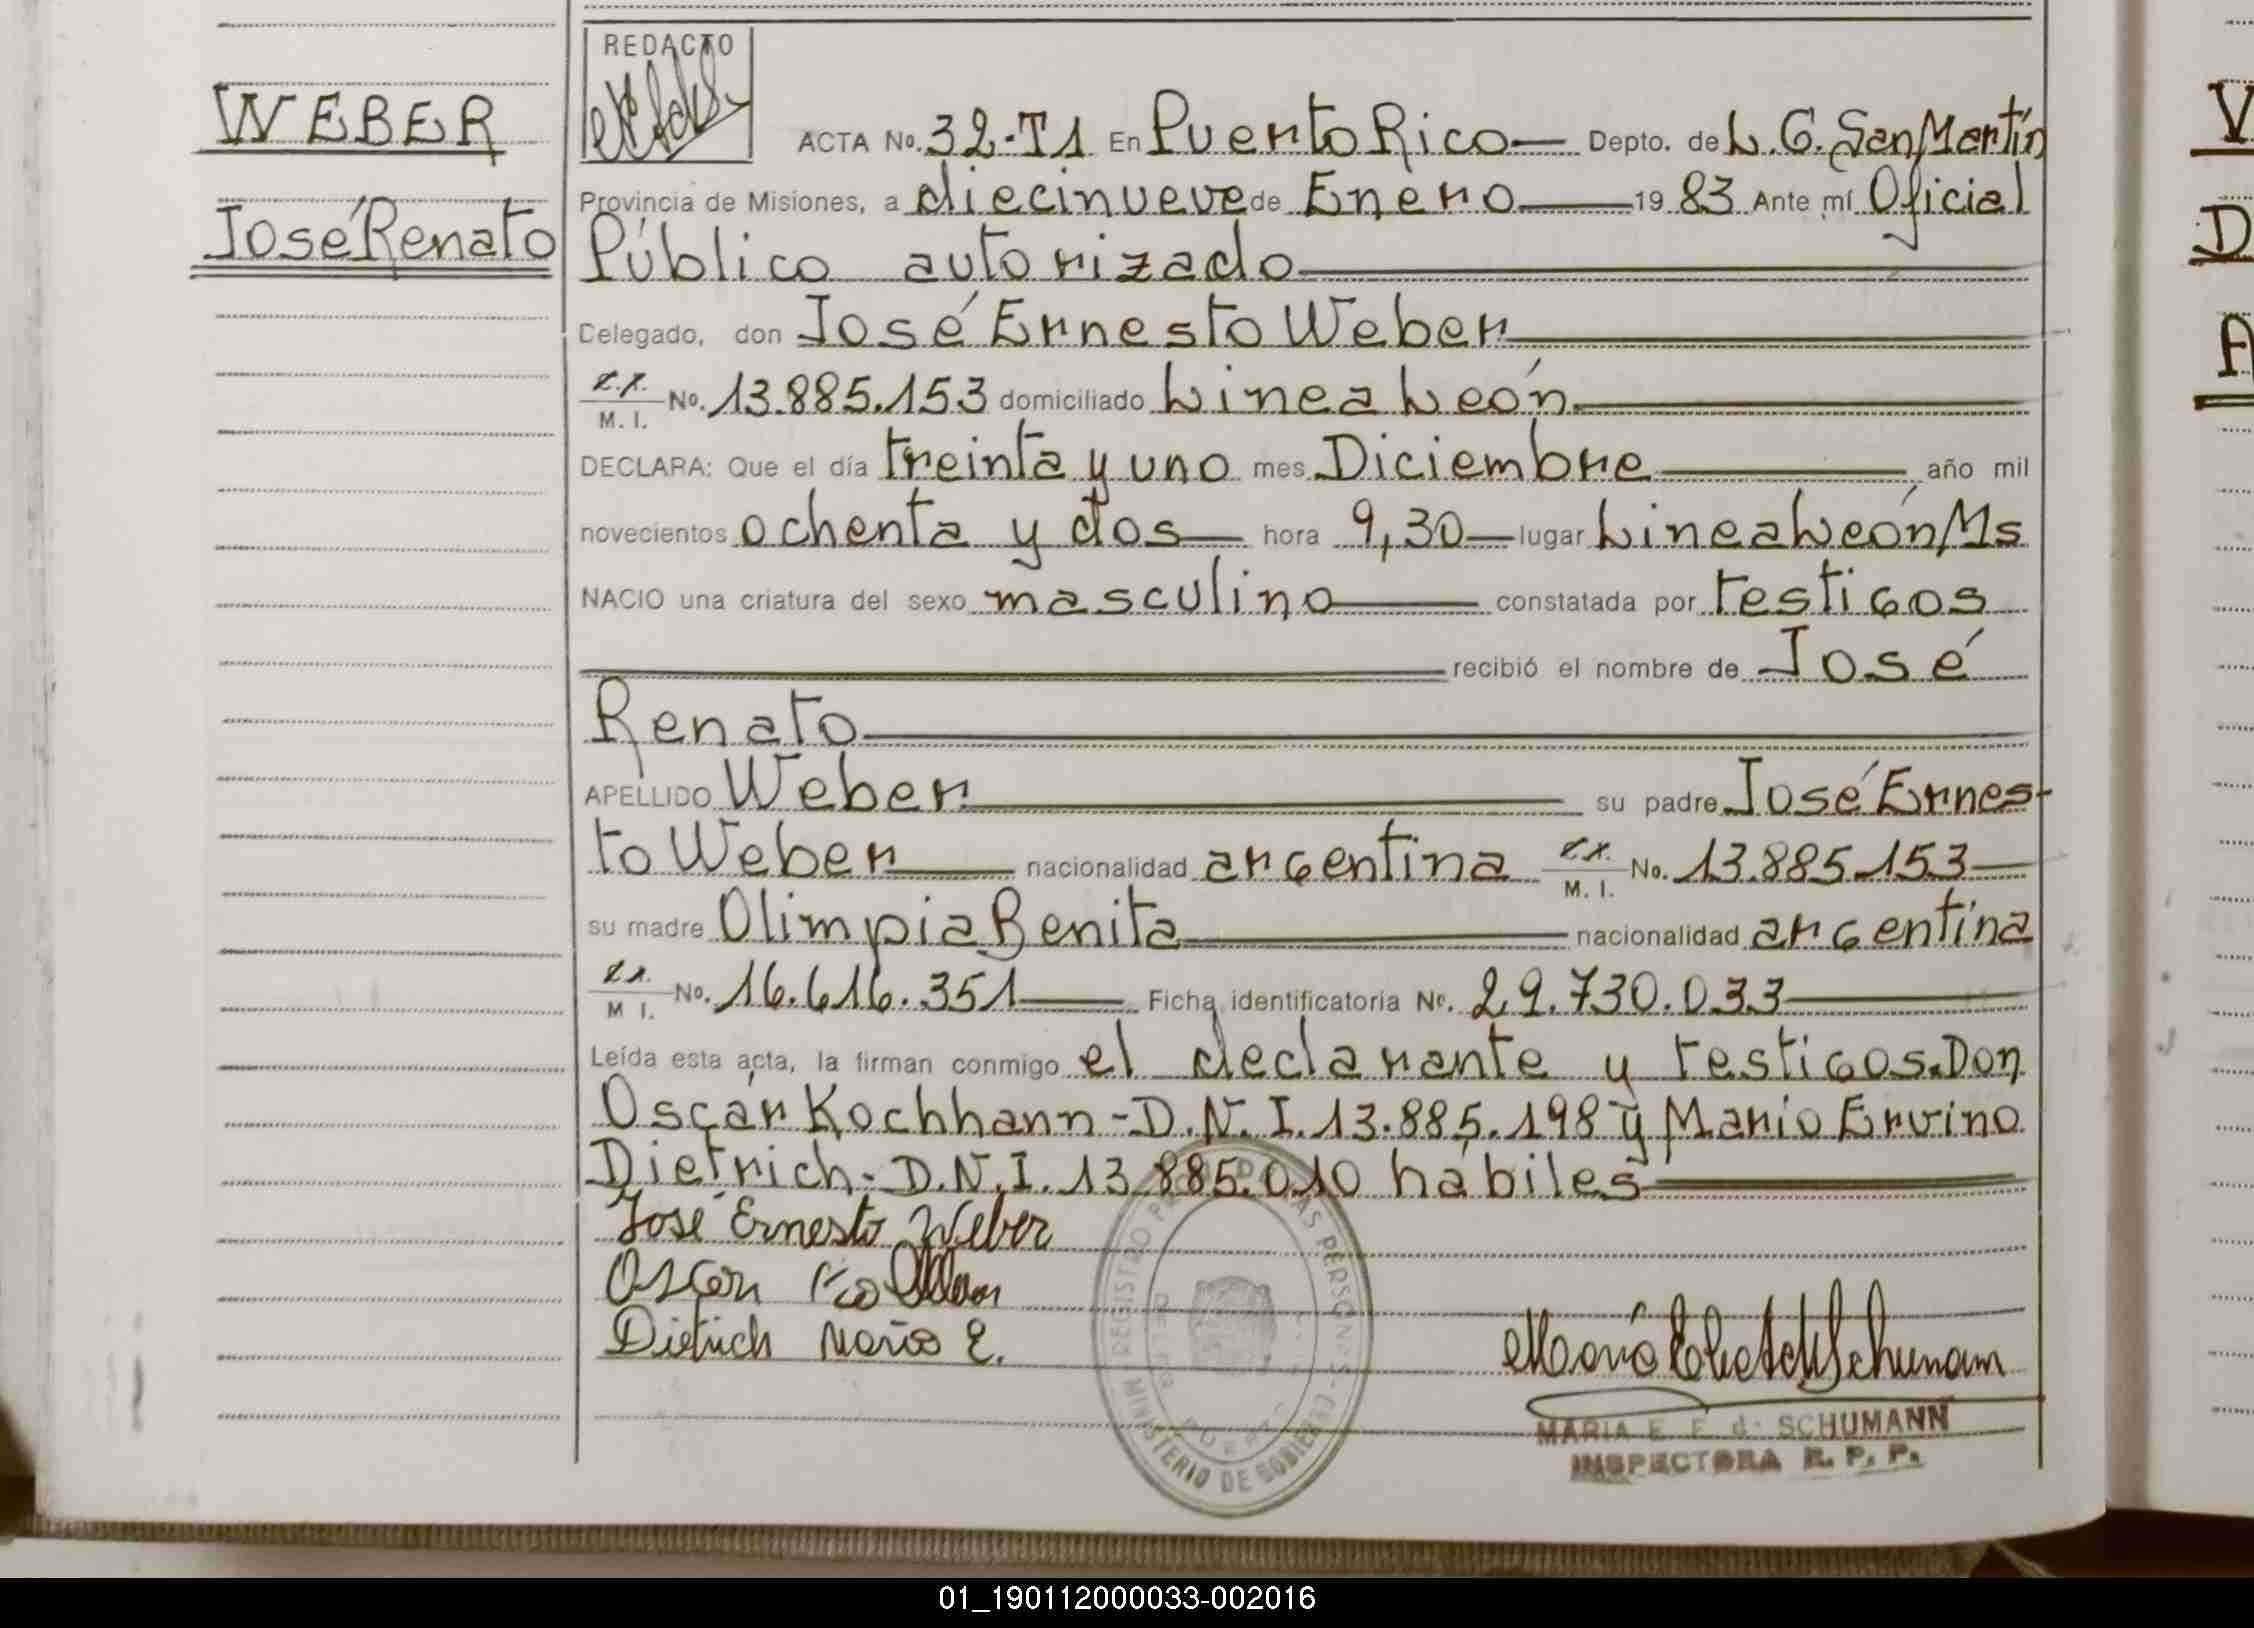 REDACTO
WEBER
José Renato
ACTA No. 32-T1 En Puerto Rico Depto. de L. G. San Martín
Provincia de Misiones, a diecinueve de Enero 1983 Ante mí Oficial
Público autorizado
Delegado, don José Ernesto Weber
M. I. No. 13.885.153 domiciliado Linea León
DECLARA: Que el día treinta y uno mes Diciembre año mil
novecientos ochenta y dos hora 9,30 lugar Linea León Ms
NACIO una criatura del sexo masculino constatada por testigos
recibió el nombre de José
Renato
APELLIDO Weber su padre José Ernes-
to Weber nacionalidad argentina M. I. No. 13.885.153
su madre Olimpia Benita nacionalidad argentina
M I. No. 16.616.351 Ficha identificatoria No. 29.730.033
Leída esta acta, la firman conmigo el declarante y testigos. Don
Oscar Kochhann - D.N.I. 13.885.198 y Mario Ervino
Dietrich - D.N.I. 13.885.010 hábiles
José Ernesto Weber
Oscar
Dietrich Mario E.
MARIA E. F. d. SCHUMANN
INSPECTORA R. P. P.
MINISTERIO DE GOBIERNO - REGISTRO PERSONAS
01_190112000033-002016